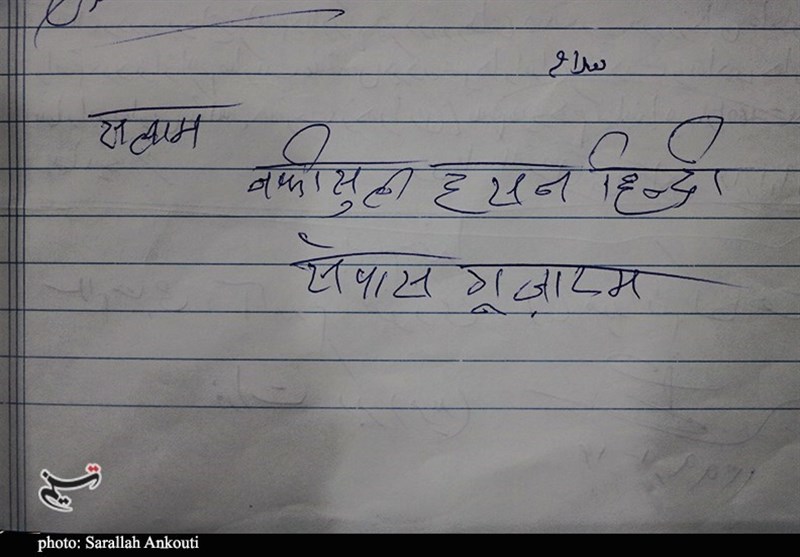 सलाम
नफीसुल हसन हिन्दी
सेपास गूज़ारम
تسنیم
photo: Sarallah Ankouti